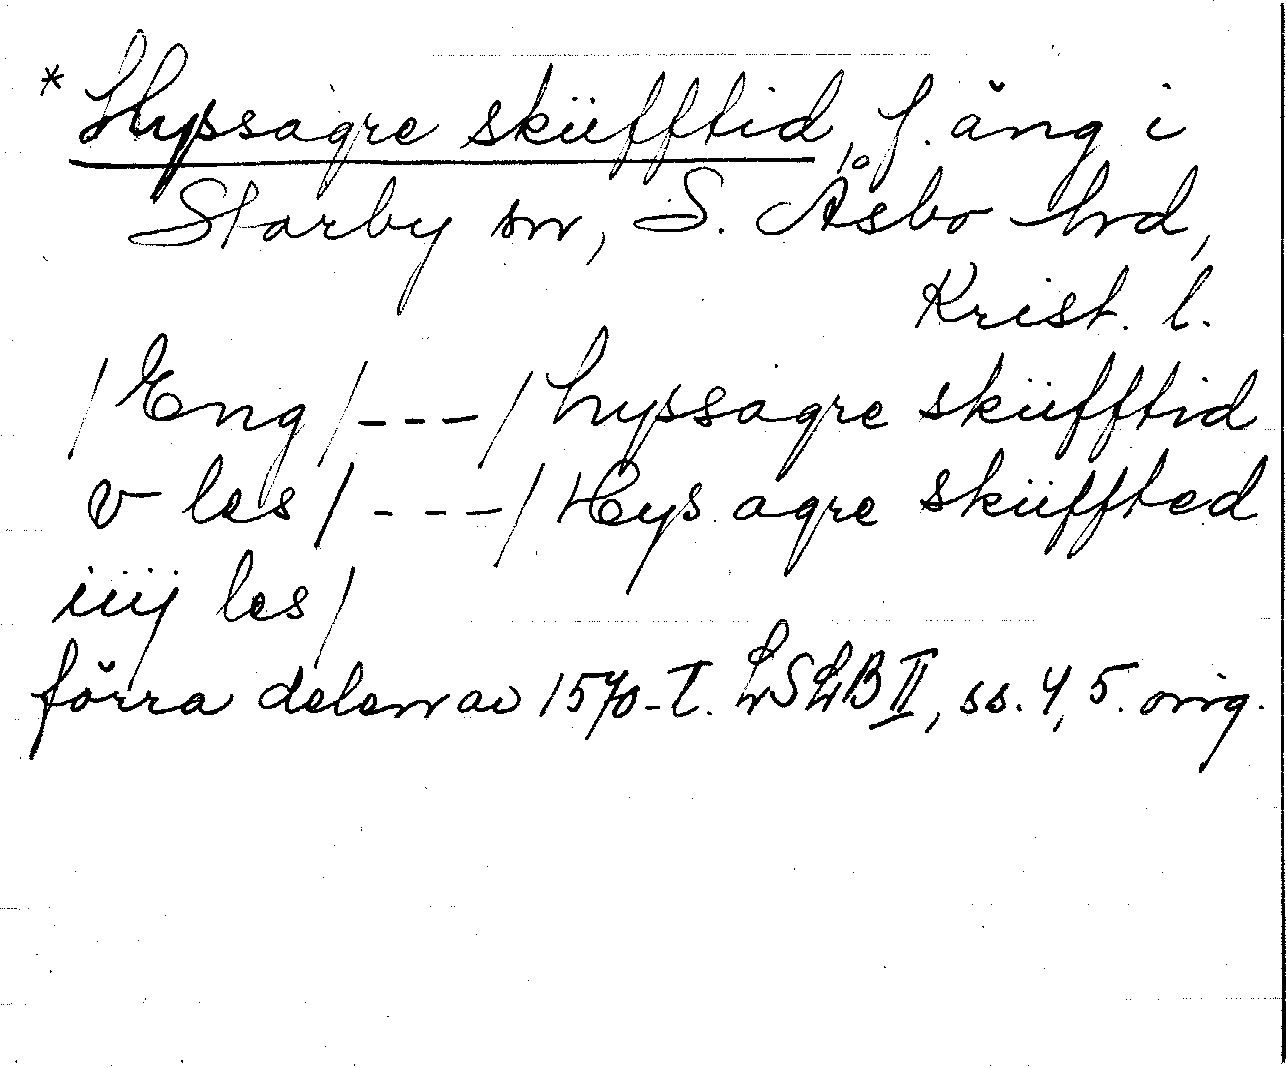 * Hyssagre sküfftid, f. äng i
Starby sn, S. Åsbo hrd,
Krist. l.
/Eng/---/hyssagre sküfftid
v les/---/Hys agre sküffted
iiij les/
förra delen av 1570-t. LSLB II, ss. 4, 5. orig.